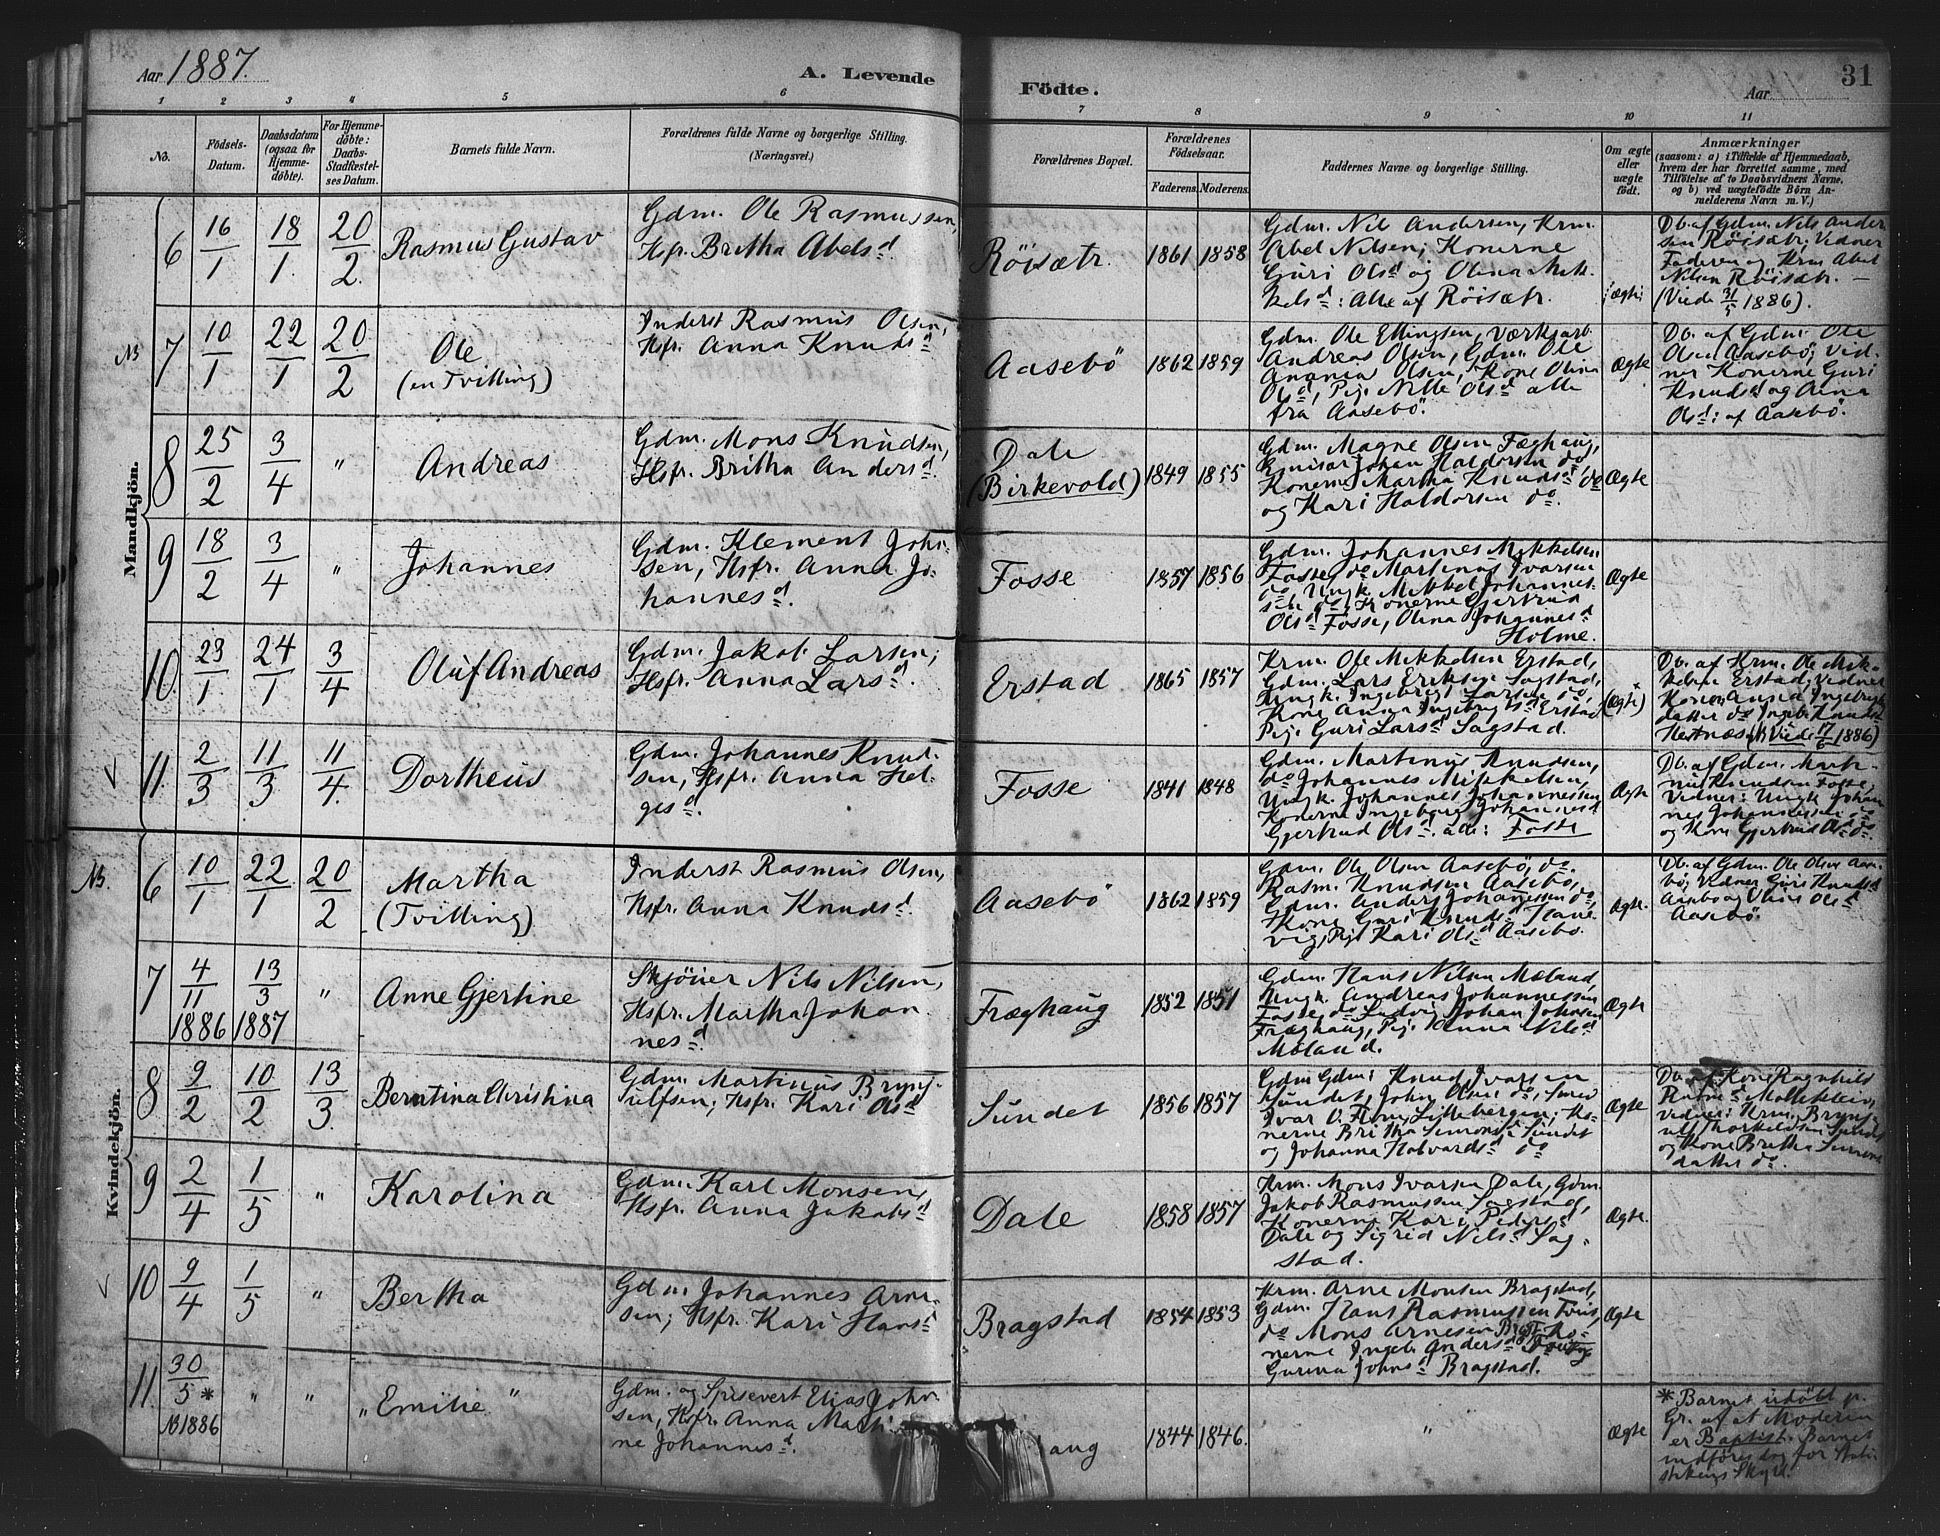 Aar 1887.
A. Levende Födte.
Aar
31
1 2 3 4 5 6 7 8 9 10 11
No.
Födsels-Datum.
Daabsdatum (ogsaa for Hjemme-döbte).
For Hjemme-döbte: Daabs-Stadfæstel-ses Datum.
Barnets fulde Navn.
Forældrenes fulde Navne og borgerlige Stilling. (Næringsvei.)
Forældrenes Bopæl.
Forældrenes Födselsaar.
Faderens. Moderens.
Faddernes Navne og borgerlige Stilling.
Om ægte eller uægte födt.
Anmærkninger
(saasom: a) i Tilfælde af Hjemmedaab, hvem der har forrettet samme, med Tilföielse af to Daabsvidners Navne, og b) ved uægtefödte Börn An-melderens Navn m. V.)
Mandkjön.
6 16/1 18/1. 20/2. Rasmus Gustav
Gdm. Ole Rasmussen,
Hsfr. Britha Abelsd.
Röisætr. 1861 1858
Gdm. Nils Andersen, Krm.
Abel Nilsen; Konerne
Guri Olsd og Olina Mik-
kelsd: Alle af Röisætr.
ægte
Db. af Gdm. Nils Ander
sen Röisætr; Vidner
Faderen og Krm Abel
Nilsen Röisætr. —
(Viede 31/5 1886).
NB 7 10/1 22/1 20/2 Ole
(en Tvilling)
Inderst Rasmus Olsen,
Hsfr. Anna Knudsd
Aasebö 1862 1859
Gdm. Ole Ellingsen, Værksarb.
Andreas Olsen, Gdm. Ole
Ananias Olsen, Kone Olina
Olsd, Pig. Nille Olsd alle
fra Aasebö.
Ægte
Db. af Gdm. Ole
Olsen Aasebö; Vid-
ner Konerne Guri
Knudsd og Anna
Olsd: af Aasebö.
8 25/2 3/4 " Andreas
Gdm. Mons Knudsen,
Hsfr. Britha Andersd.
Dale
(Birkevold) 1849 1855
Gdm. Magne Olsen Fæghaug,
Emisær Johan Haldorsen do,
Konerne Martha Knudsd do
og Kari Haldorsen do.
Ægte
9 18/2 3/4 " Johannes
Gdm. Klement Johs-
sen, Hsfr. Anna Jo-
hannesd.
Fosse 1857 1856
Gdm. Johannes Mikkelsen
Fosse, do Martinus Ivarsen
do, Ungk. Mikkel Johannes-
sen do, Konerne Gjertrud
Olsd Fosse, Olina Johannesd
Holme.
Ægte
10 23/1. 24/1 3/4 Oluf Andreas
Gdm. Jakob Larsen;
Hsfr. Anna Larsd.
Erstad 1865 1857
Krm. Ole Mikkelsen Erstad,
Gdm. Lars Eriksen Sagstad,
Ungk. Ingebrigt Larsen do,
Kone Anna Ingebrigtsd Erstad
Pig. Guri Larsd Sagstad.
(Ægte)
Db. af Krm. Ole Mik-
kelsen Erstad; Vidner
Konen Anna Ingebrigts
datter do Ingeb. Knudsd
Hestnæs (Viede 17/6 1886)
11. 2/3 11/3 11/4. Dortheus
Gdm. Johannes Knud-
sen, Hsfr. Anna Hel-
gesd.
Fosse 1841 1848
Gdm. Martinus Knudsen,
do Johannes Mikkelsen,
Ungk. Johannes Johannessen
Konerne Ingeborg Johannesd
Gjertrud Olsd. alle: Fosse
Ægte
Db. af Gdm. Marti-
nus Knudsen Fosse,
Vidner: Ungk Johan
nes Johannessen do
og Kone Gjertrud Olsd do
Kvindekjön.
NB. 6 10/1 22/1 20/2 Martha
(Tvilling)
Inderst Rasmus Olsen,
Hsfr. Anna Knudsd.
Aasebö 1862 1859
Gdm. Ole Olsen Aasebö, do.
Rasm. Knudsen Aasebö,
Gdm. Anders Johannessen do,
Kone Guri Knudsd Hane-
vig, Pige Kari Olsd Aasebö.
Ægte.
Db. af Gdm. Ole Olsen Aase-
bö; Vidner Guri Knudsd
Aasebö og Olina Olsd
Aasebö.
7 4/11 1886 13/3 1887 " Anne Gjertine
Skjöier Nils Nilsen,
Hsfr. Martha Johan
nesd.
Fræghaug 1852 1851
Gdm. Hans Nilsen Mæland,
Ungk. Andreas Johannessen
Fosse, do Ludvig Johan Johnsen
Fræghaug, Pig. Anna Nilsd
Mæland.
Ægte
8 9/2 10/2 13/3 Berntina Christina
Gdm. Martinus Brynj-
ulfsen; Hsfr. Kari Olsd
Sundet 1856 1857
Gdm Gdm: Knud Ivarsen
Sundet, John Olsen do, Smed
Ivar O. Lillebergen, Ko-
nerne Britha Simonsd Sundet
og Johanna Halvardsd do
Ægte
Db. af Kone Ragnhild
Rasmd
Vidner: Krm. Brynj-
ulf Thorkildsen Sundet
og Kone Britha Simons
datter do.
9 2/4 1/5 " Karolina
Gdm. Karl Monsen,
Hsfr. Anna Jakobsd
Dale 1858 1857
Krm. Mons Ivarsen Dale, Gdm.
Jakob Rasmussen Sagstad,
Konerne Kari Pedersd
Dale og Sigrid Nilsd Sag-
stad.
Ægte.
10 9/4 1/5 " Bertha
Gdm. Johannes Arne-
sen; Hsfr. Kari Hansd
Bragstad 1854 1853
Krm. Arne Monsen Bragstad,
Gdm. Hans Rasmussen
do Mons Arnesen Ko-
nerne Ingeb. Andersd
Gurina Johnsd Bragstad.
Ægte
11 30/5 * NB 1886 " " „Emilie"
Gdm. og Spisevert Elias John-
sen, Hsfr. Anna Marti
ne Johannesd.
aug 1844 1846. "
Ægte
* Barnet udöbt p.
Gr. af at Moderen
er Baptist. Barnet
indföres dog for Stati-
stikens Skyld.